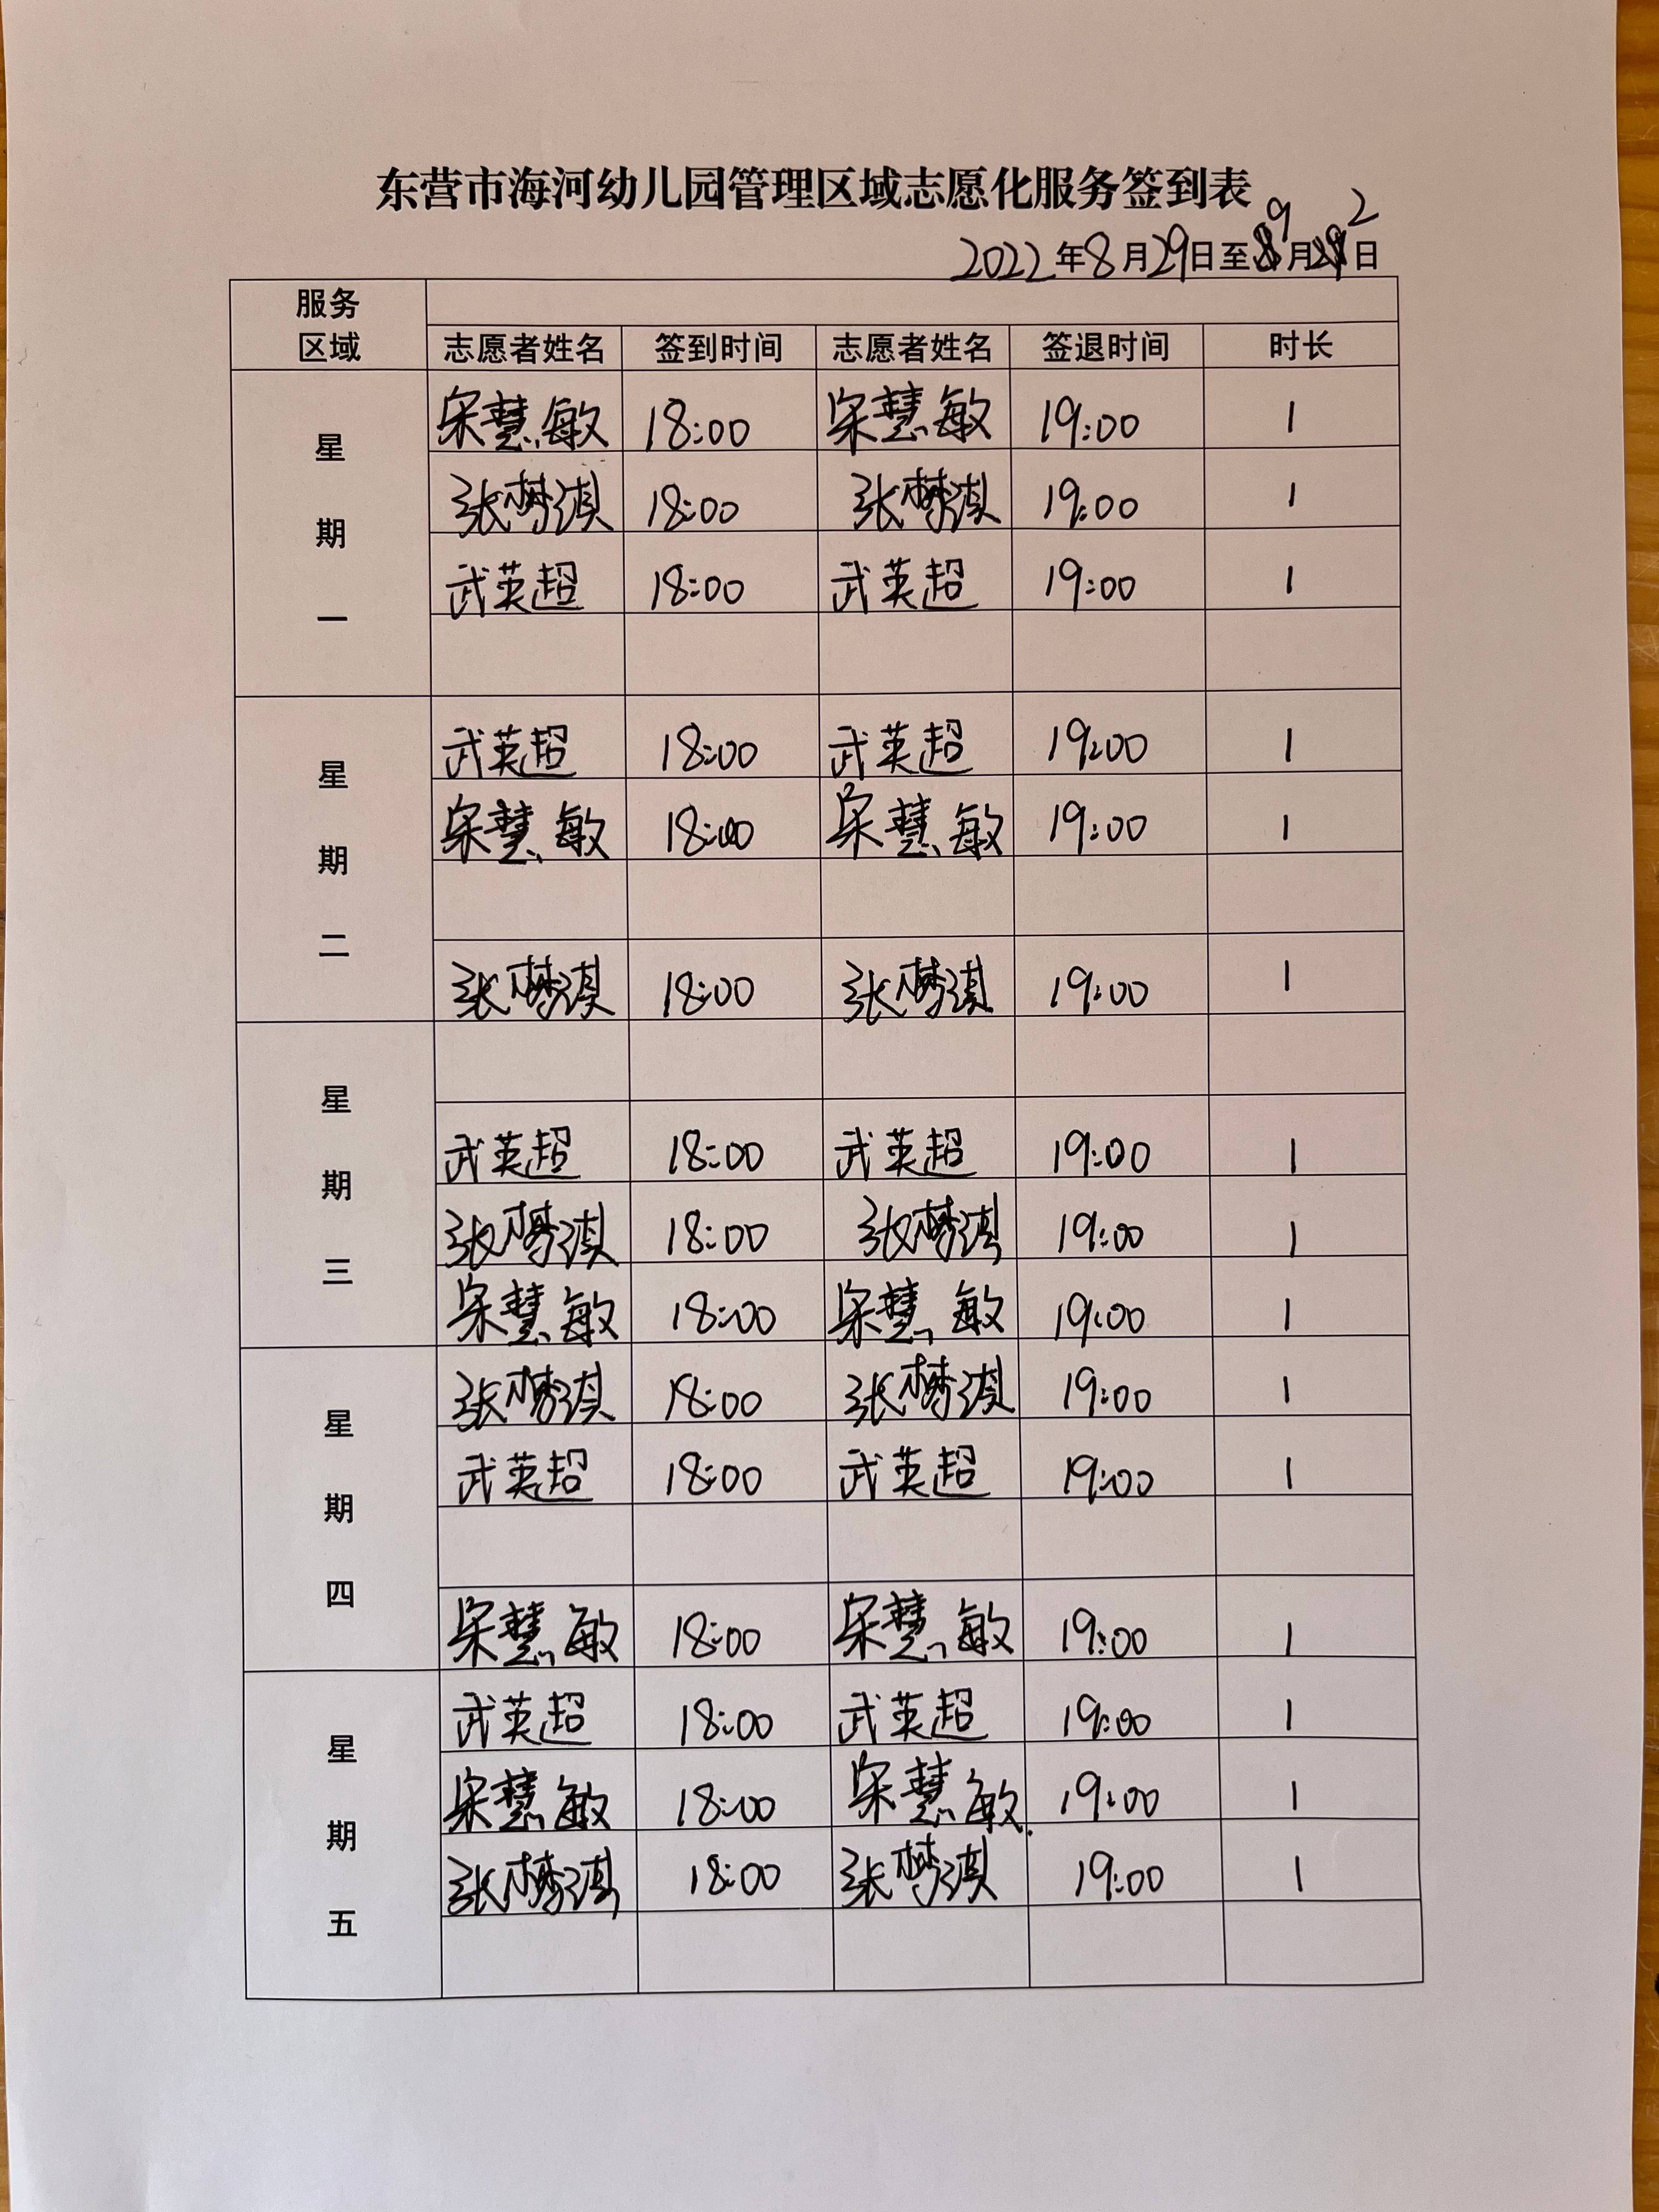 东营市海河幼儿园管理区域志愿化服务签到表
2022年8月29日至9月2日
服务
区域
志愿者姓名 签到时间 志愿者姓名 签退时间 时长
星期一
宋慧敏 18:00 宋慧敏 19:00 1
张梦淇 18:00 张梦淇 19:00 1
武英超 18:00 武英超 19:00 1
星期二
武英超 18:00 武英超 19:00 1
宋慧敏 18:00 宋慧敏 19:00 1
张梦淇 18:00 张梦淇 19:00 1
星期三
武英超 18:00 武英超 19:00 1
张梦淇 18:00 张梦淇 19:00 1
宋慧敏 18:00 宋慧敏 19:00 1
星期四
张梦淇 18:00 张梦淇 19:00 1
武英超 18:00 武英超 19:00 1
宋慧敏 18:00 宋慧敏 19:00 1
星期五
武英超 18:00 武英超 19:00 1
宋慧敏 18:00 宋慧敏 19:00 1
张梦淇 18:00 张梦淇 19:00 1